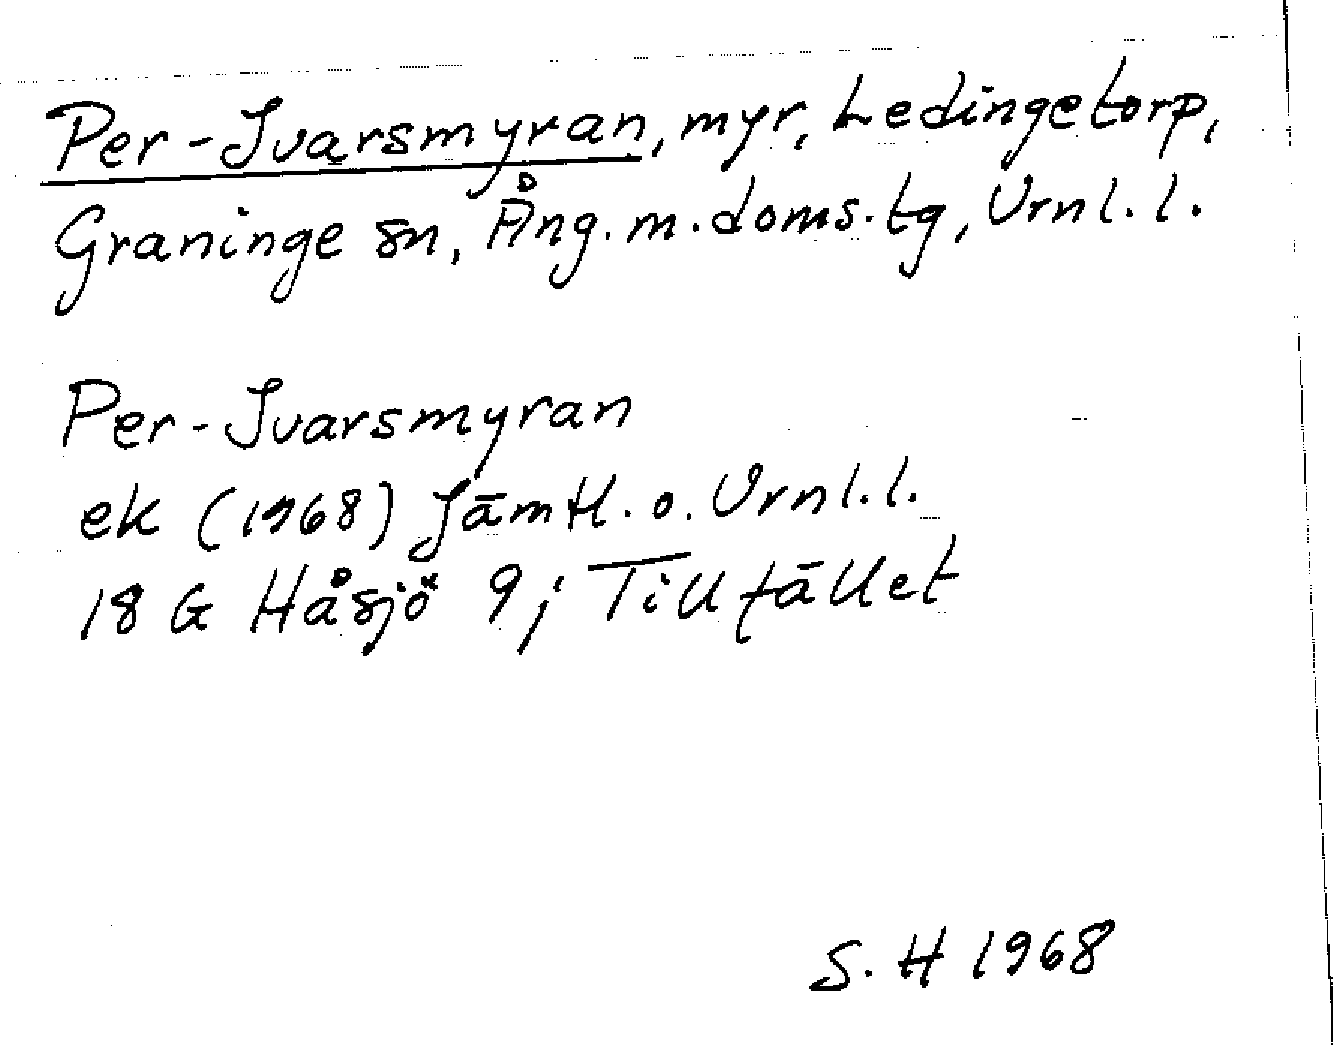 Per-Ivarsmyran, myr, Ledingetorp,
Graninge sn, Ång. m. doms. tg, Vrnl. l.
Per-Ivarsmyran
ek (1968) Jämtl. o. Vrnl. l.
18 G Håsjö 9; Tillfället
S. H 1968